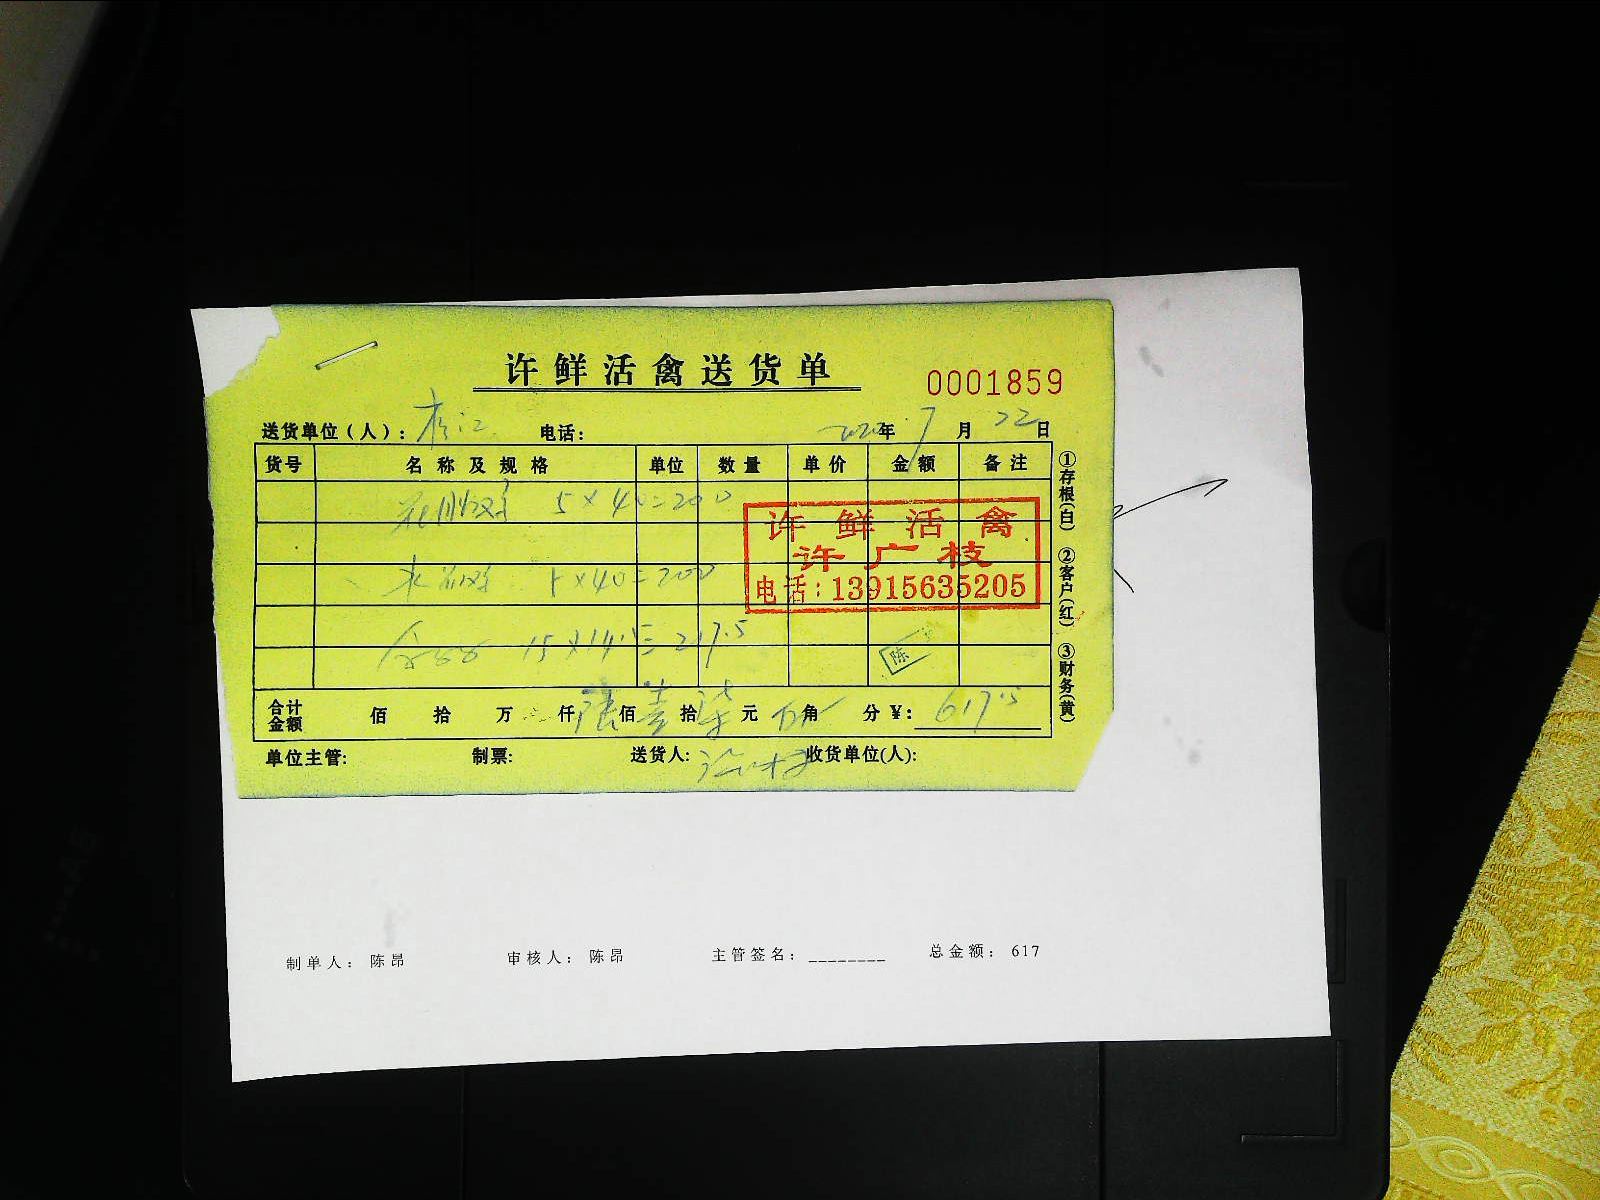 许鲜活禽送货单
0001859
送货单位（人）： 电话： 2020年 7月 22日
货号 名称及规格 单位 数量 单价 金额 备注
5×40=200
5×40=200
15×14.5=217.5
许鲜活禽
许广枝
电话：13915635205
陈
合计金额 佰 拾 万 仟 佰 拾 元 角 分 ¥： 617.5
单位主管： 制票： 送货人： 收货单位(人)：
①存根(白) ②客户(红) ③财务(黄)
制单人： 陈昂 审核人： 陈昂 主管签名： ________ 总金额： 617